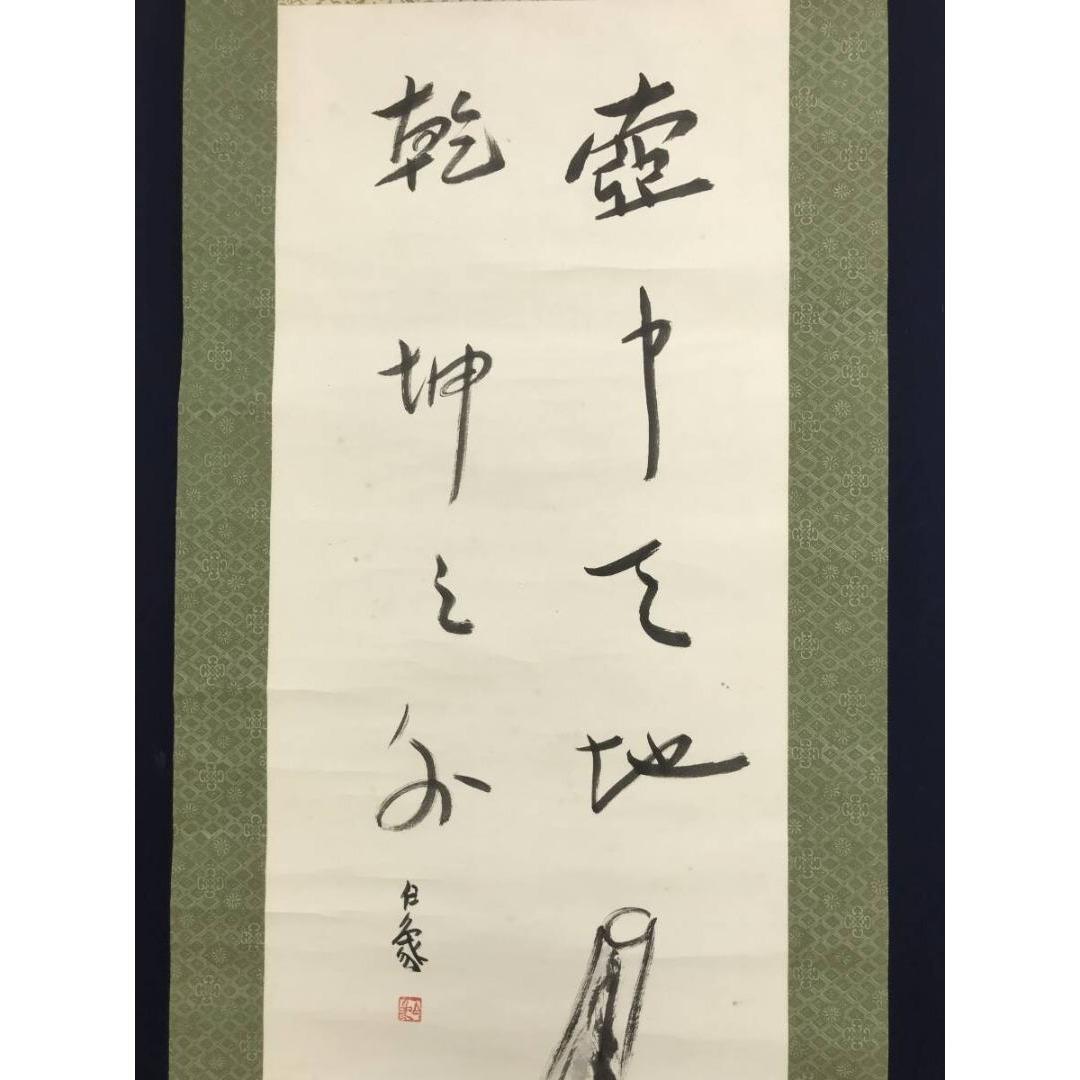 壺中天地
乾坤之外
白象